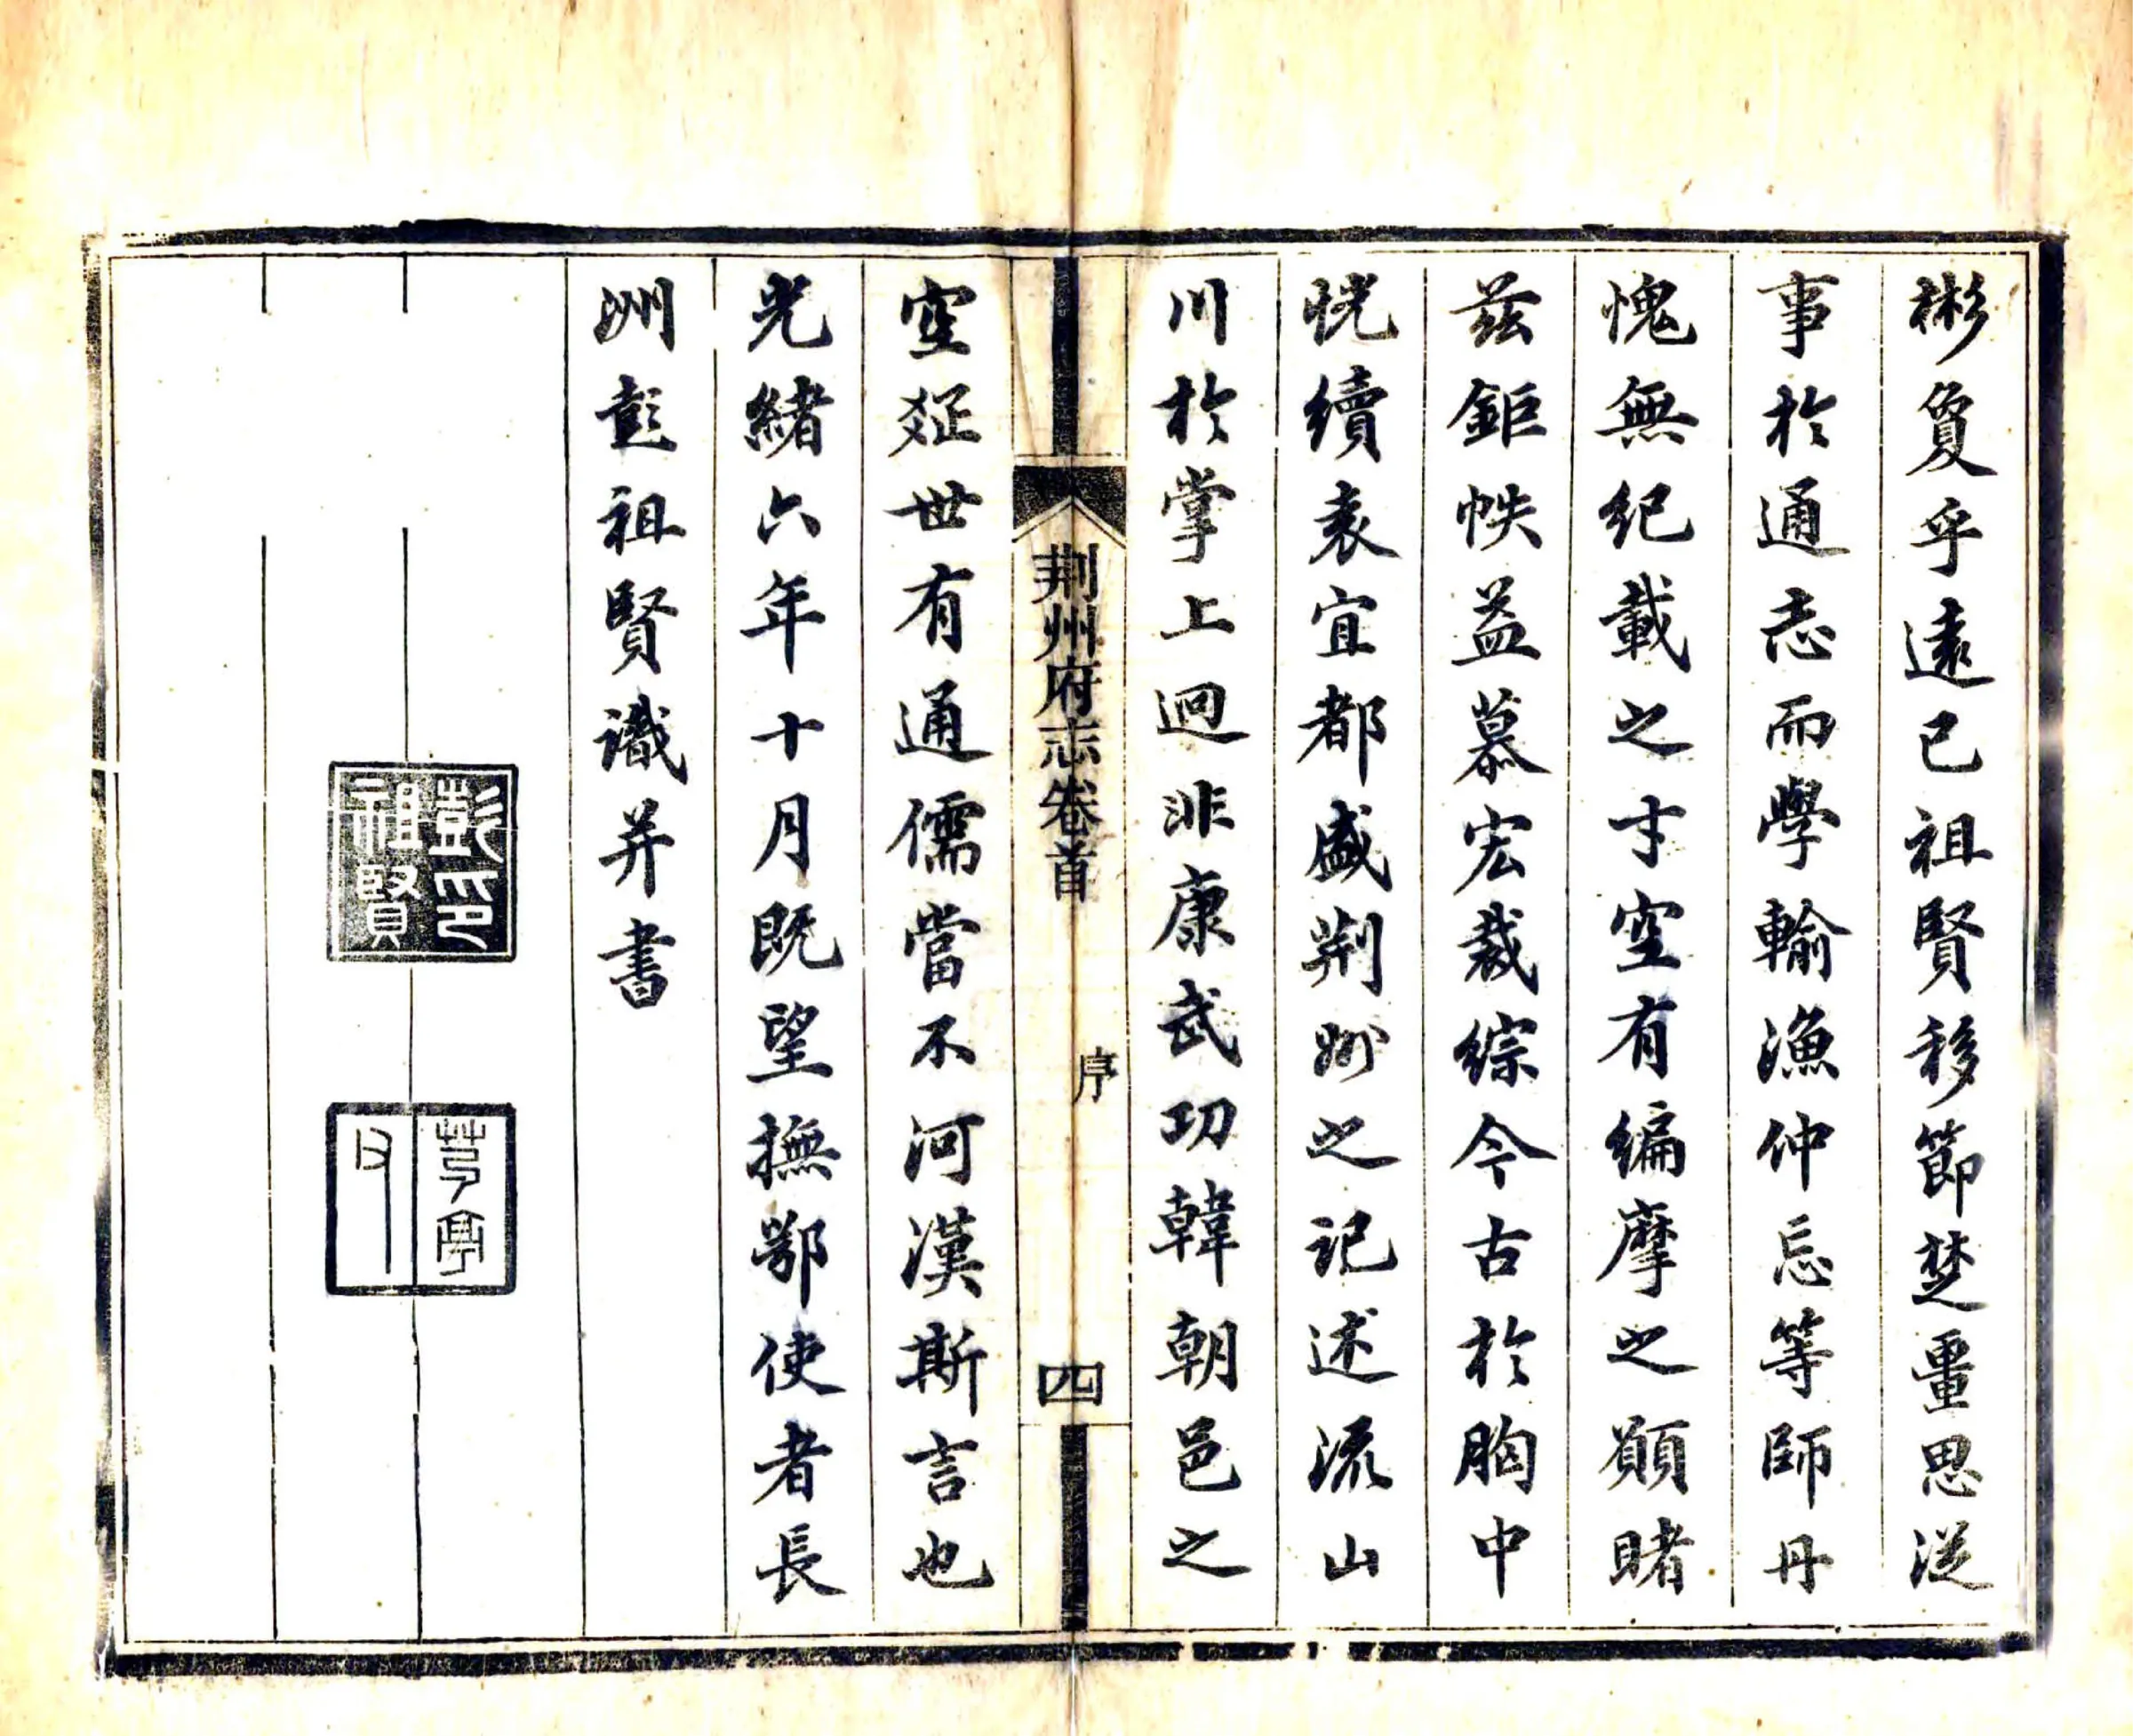 彬夐乎遠已祖賢移節楚畺思從
事於通志而學輸漁仲忘等師丹
愧無紀載之才空有編摩之願睹
茲鉅帙益慕宏裁綜今古於胸中
恍續袁宜都盛荆州之記述流山
川於掌上迥非康武功韓朝邑之
空疏世有通儒當不河漢斯言也
光緒六年十月既望撫鄂使者長
洲彭祖賢識并書
荆州府志卷首
序
四
彭印
祖賢
芍亭